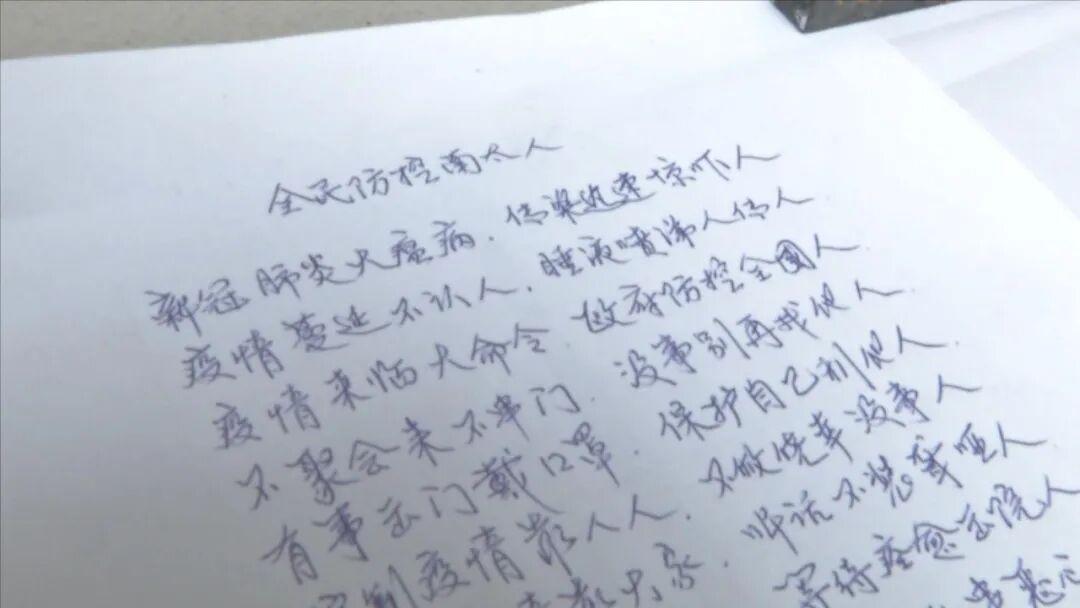 全民防控南太人
新冠肺炎大瘟病．传染迅速惊吓人
疫情蔓延不认人．唾液喷涕人传人
疫情来临大命令．政府防控全國人
不聚会来不串门．没事别再找他人．
有事出门戴口罩．保护自己利他人．
控制疫情靠人人．不做侥幸没事人
大家．听话不装聋哑人
等待痊愈出院人